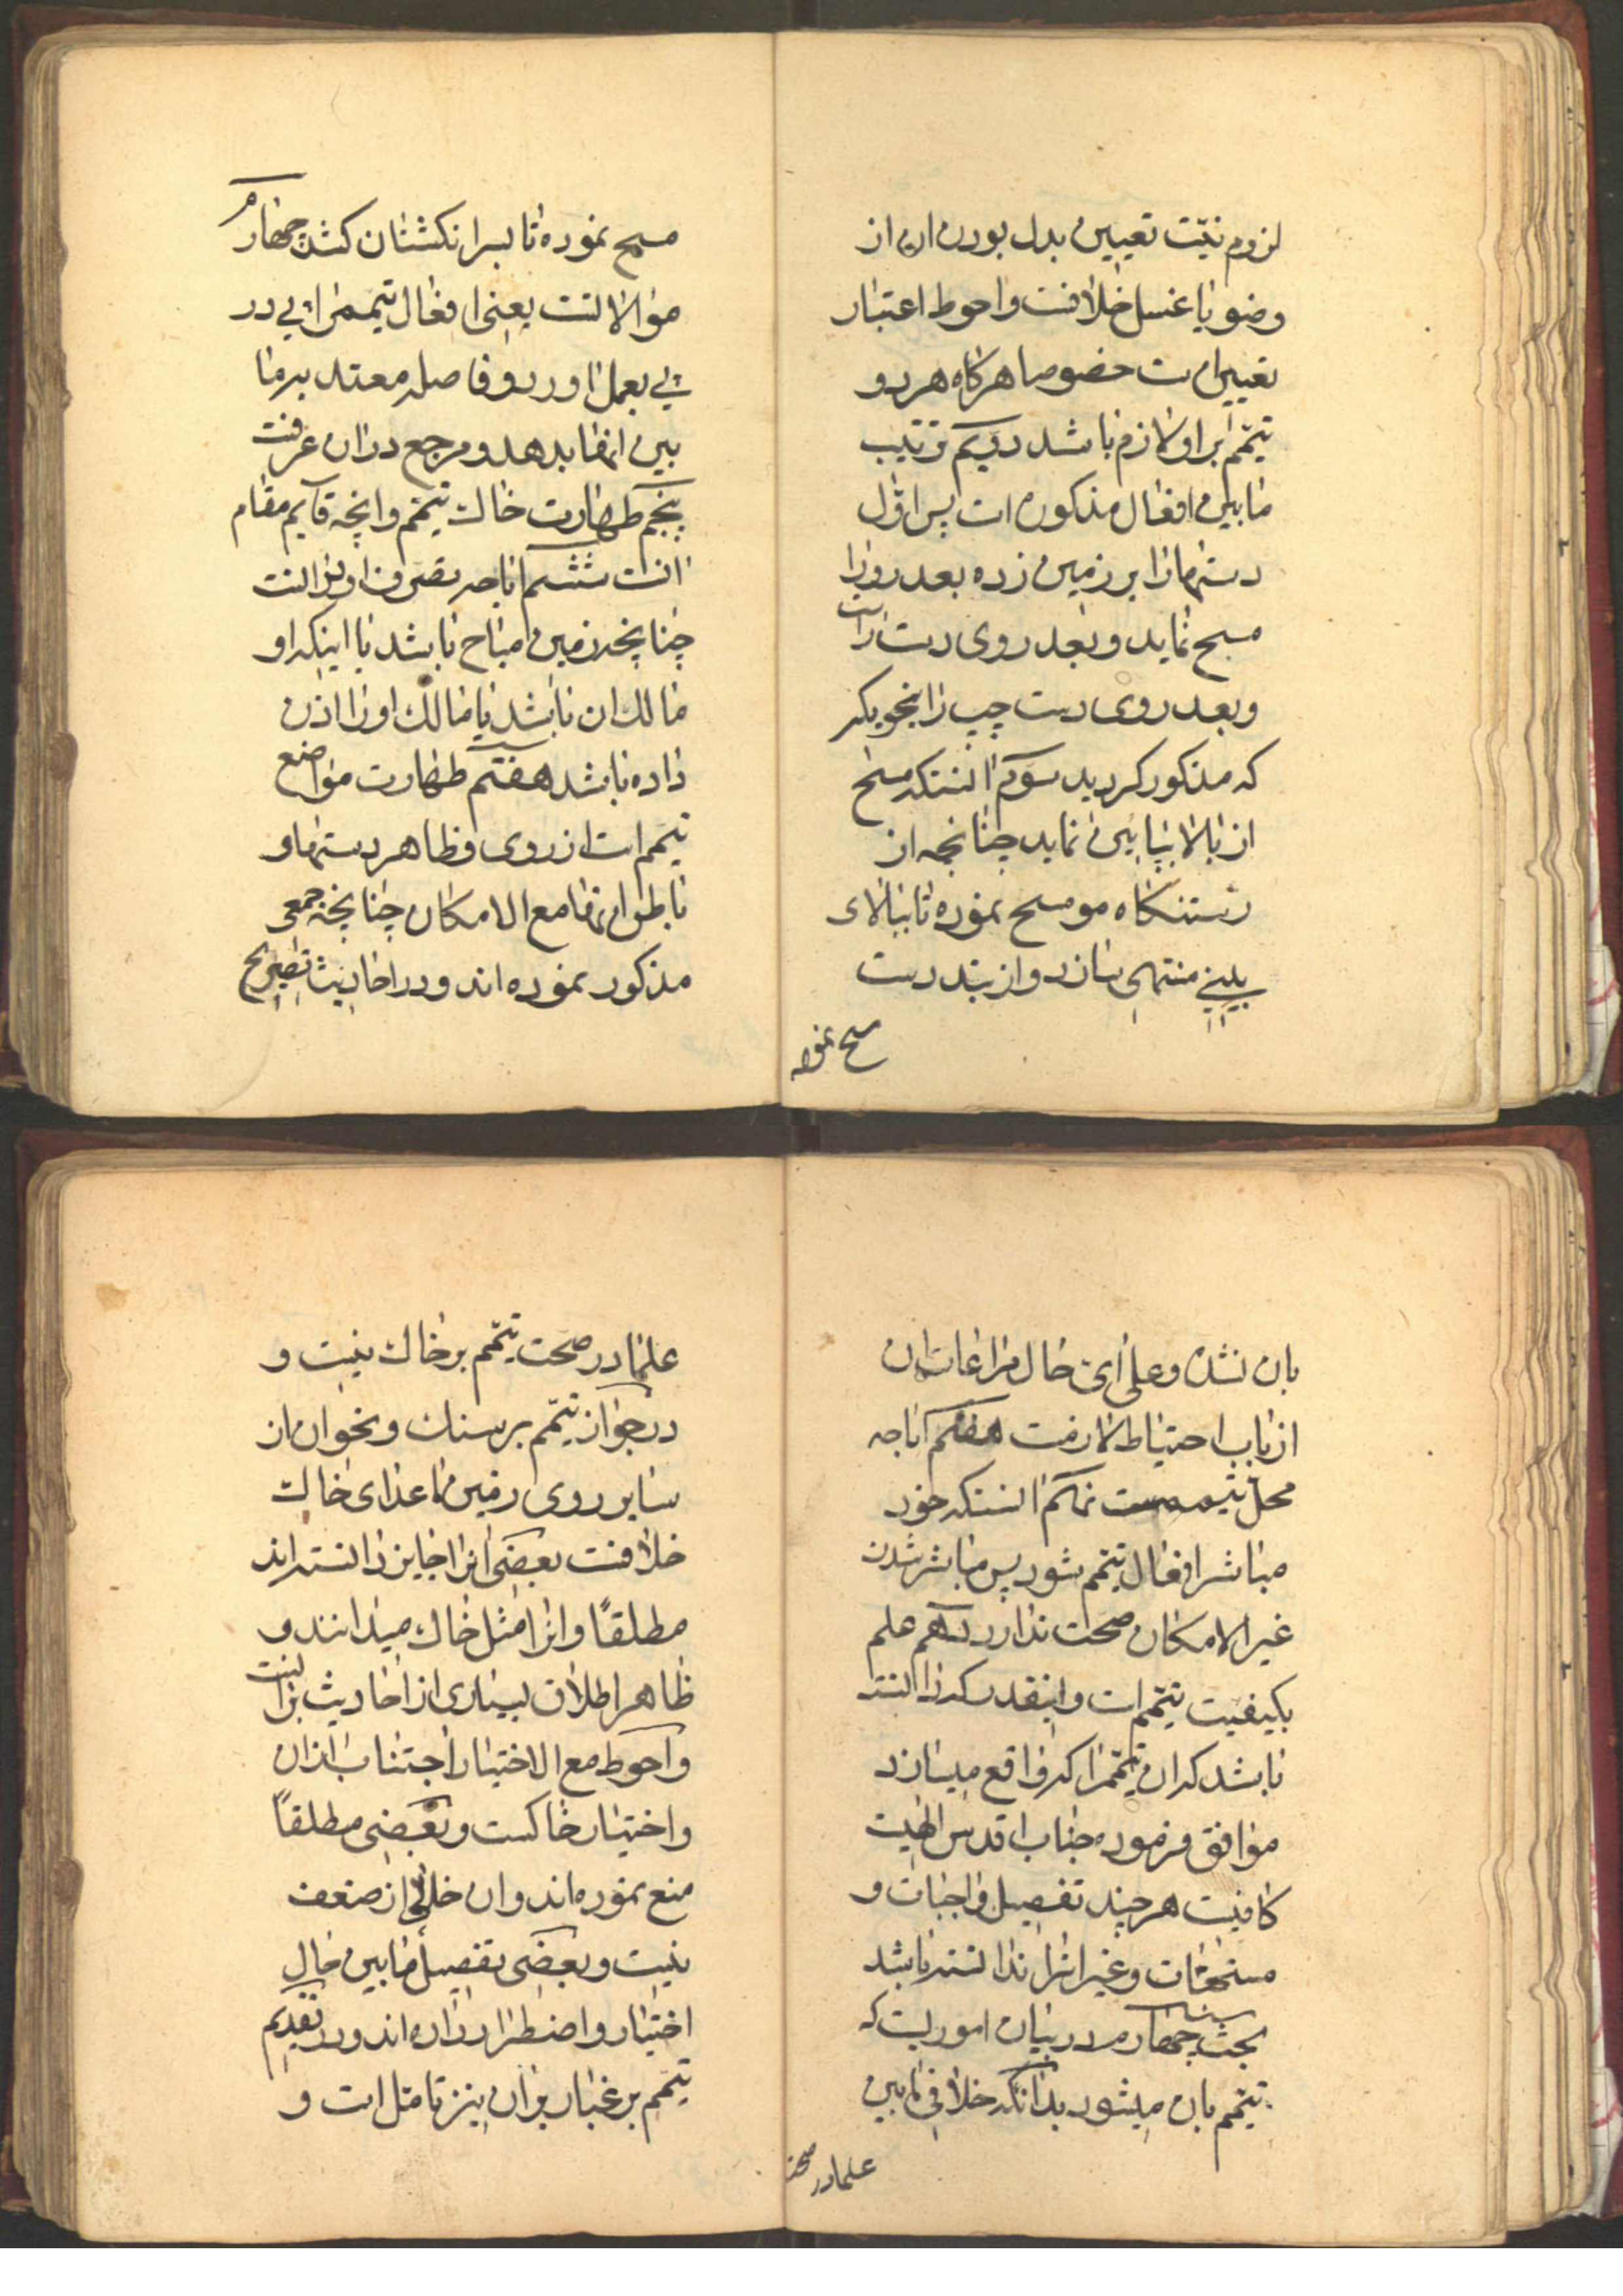 لزوم نیّت تعیین بدل بودن ان از
وضو یا غسل خلافست و احوط اعتبار
تعیین است خصوصا هرکاه هر دو
تیمّم بر او لازم باشد دویّم ترتیب
مابین افعال مذکوره است پس اوّل
دستها را بر زمین زده بعد رو را
مسح نماید و بعد روی دست راست
و بعد روی دست چپ را بنحویکه
که مذکور کردید سوّم انستکه مسح
از بالا بپایین نماید چنانچه از
رستنکاه مو مسح نموده تا ببالای
بینی منتهی سازد و از بند دست
مسح نموده
مسح نموده تا بسر انکشتان کشد چهارم
موالاتست یعنی افعال تیمم را پی در
پی بعمل اورد و فاصله معتد به ما
بین انها بدهد و مرجع در ان عرفست
پنجم طهارت خاک تیمّم و انچه قایم مقام
انست ششم اباحه تصرف او در انست
چنانچه زمین مباح باشد یا اینکه او
مالک ان باشد یا مالک او را اذن
داده باشد هفتم طهارت مواضع
تیمّم است از روی و ظاهر دستها و
باطن انها مع الامکان چنانچه جمعی
مذکور نموده اند و در احادیث تصریح
بان نشده و علی ایّ حال مراعات ان
از باب احتیاط لازمست هشتم اباحه
محل تیممست نهم انستکه خود
مباشر افعال تیمّم شود پس مباشر شدن
غیر الامکان صحت ندارد دهم علم
بکیفیت تیمّم است و اینقدر که دانسته
باشد که ان تیمّم را که واقع میسازد
موافق فرموده جناب اقدس الهیست
کافیست هر چند تفصیل واجبات و
مستحبّات و غیر انرا ندانسته باشد
بحث چهارم در بیان اموریست که
تیمّم بان میشود بدانکه خلافی مابین
علما در صحت
علما در صحّت تیمّم بر خاک نیست و
در جواز تیمّم بر سنک و نحو ان از
سایر روی زمین ما عدای خاک
خلافست بعضی انرا جایز دانسته اند
مطلقاً و انرا مثل خاک میدانند و
ظاهر اطلاق بسیاری از احادیث بر انست
و احوط مع الاختیار اجتناب از ان
و اختیار خاکست و بعضی مطلقاً
منع نموده اند و ان خالی از ضعف
نیست و بعضی تفصیل مابین حال
اختیار و اضطرار داده اند و در تقدیم
تیمّم بر غبار بر ان نیز تامّل است و